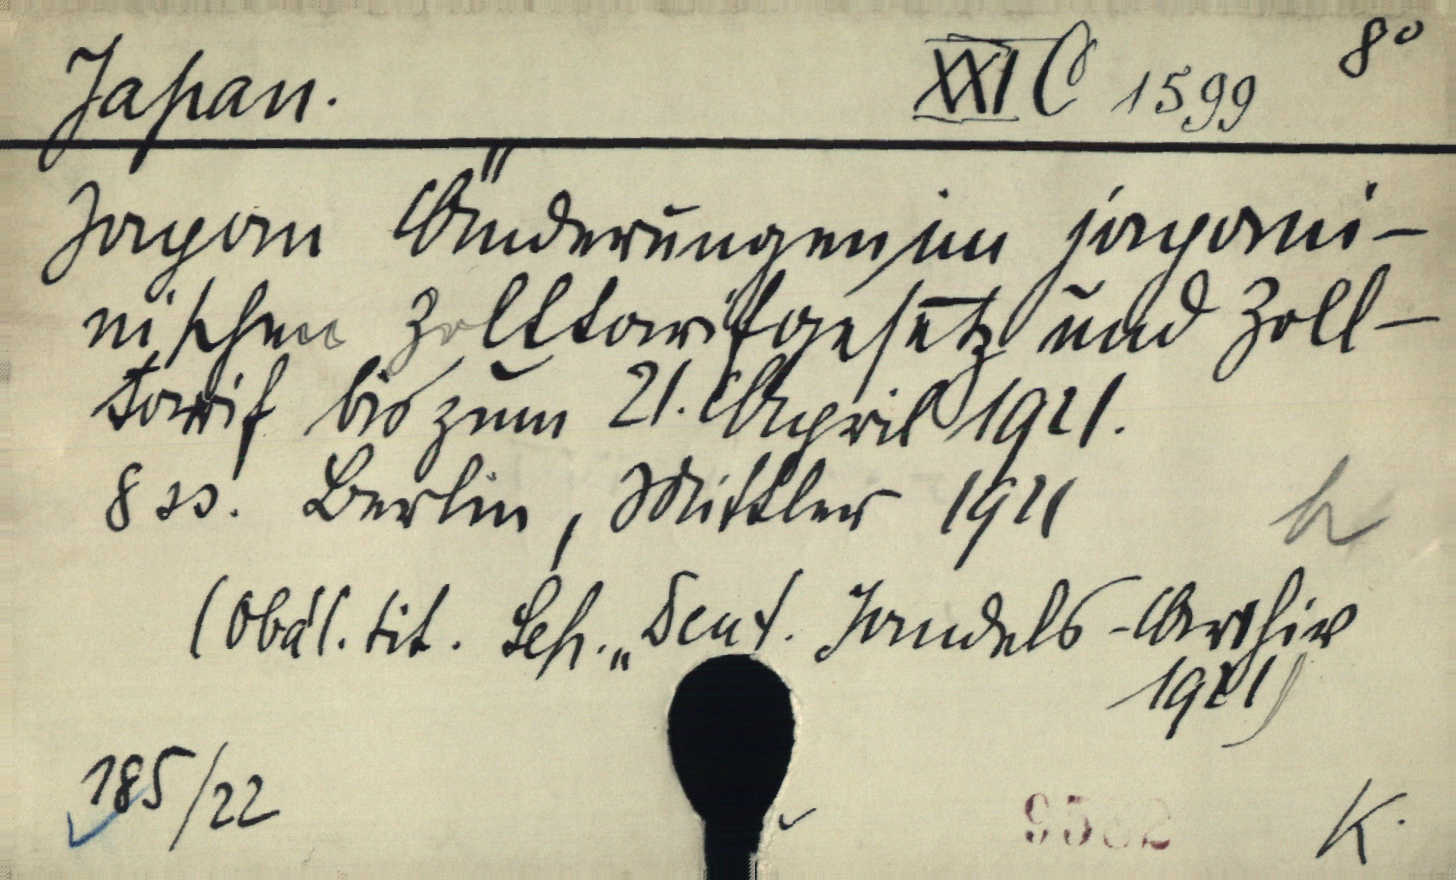 Japan. XXI C 1599 8°
Japan Änderungen im japani-
nischen Zolltarifgesetz und Zoll-
tarif bis zum 21. April 1921.
8 ss. Berlin, Mittler 1921
(Obál. tit. Seh. „Deut. Handels-Archiv
1921)
185/22
K.